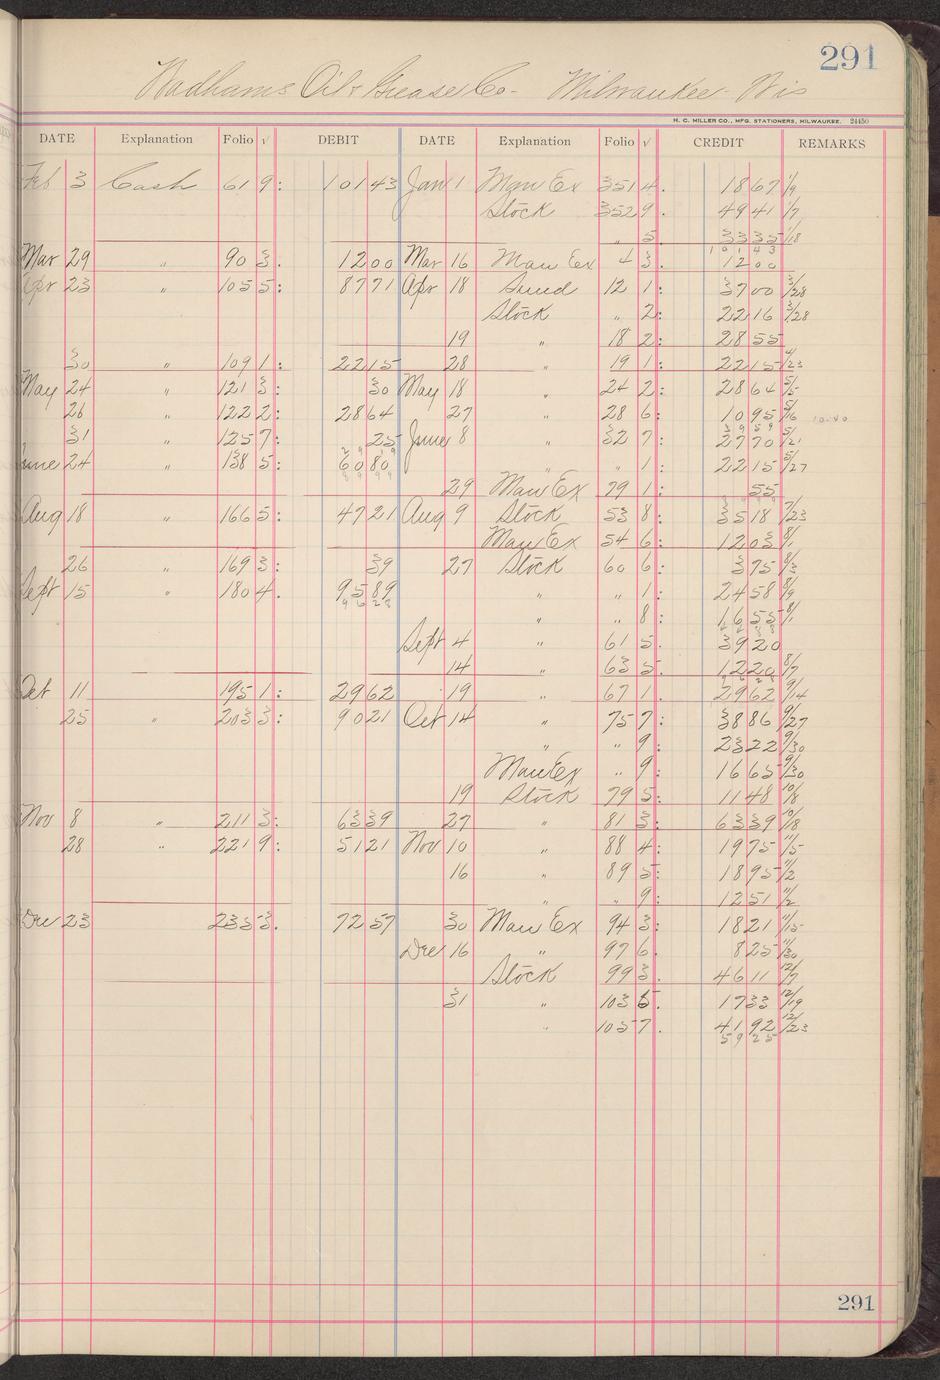 291
Wadhams Oil & Grease Co- Milwaukee Wis
H. C. MILLER CO., MFG. STATIONERS, MILWAUKEE. 24450
DATE Explanation Folio √ DEBIT DATE Explanation Folio √ CREDIT REMARKS
Feb 3 Cash 61 9: 101 43 Jan 1 Man Ex 351 4. 18 67 1/9
Stock 352 9. 49 41 1/7
" 5. 33 35 1/18
101 43
Mar 29 " 90 3. 12 00 Mar 16 Man Ex 4 3. 12 00
Apr 23 " 105 5: 87 71 Apr 18 Sund 12 1: 37 00 3/28
Stock " 2: 22 16 3/28
19 " 18 2: 28 55
30 " 109 1: 22 15 28 " 19 1: 22 15 4/23
May 24 " 121 3: 30 May 18 " 24 2: 28 64 5/5
26 " 122 2: 28 64 27 " 28 6: 10 95 5/16
31 " 125 7: 25 June 8 " 32 7: 27 70 5/21
June 24 " 138 5: 60 80 " " 1: 22 15 5/27
29 Man Ex 79 1: 55
Aug 18 " 166 5: 47 21 Aug 9 Stock 53 8: 35 18 7/23
Man Ex 54 6: 12 03 8/1
26 " 169 3: 39 27 Stock 60 6: 3 75 8/3
Sept 15 " 180 4. 95 89 " " 1: 24 58 8/9
96 28
" " 8: 16 55 8/1
Sept 4 " 61 5. 39 20
14 " 63 5. 12 20 8/7
Oct 11 195 1: 29 62 19 " 67 1. 29 62 9/14
25 " 203 3: 90 21 Oct 14 " 75 7: 38 86 9/27
" " 9: 23 22 9/30
Man Ex " 9: 16 65 9/30
19 Stock 79 5: 11 48 10/8
Nov 8 " 211 3: 63 39 27 " 81 3: 63 39 10/18
28 " 221 9: 51 21 Nov 10 " 88 4: 19 75 11/5
16 " 89 5: 18 95 11/2
" " 9: 12 51 11/2
Dec 23 235 3. 72 57 30 Man Ex 94 3: 18 21 11/15
Dec 16 " 97 6. 8 25 11/30
Stock 99 3. 46 11 12/7
31 " 103 6. 17 33 12/19
" 105 7. 41 92 12/23
59 25
291